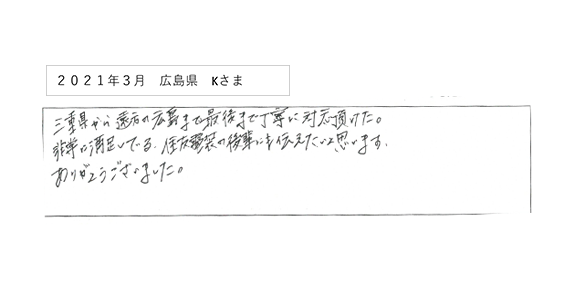 ２０２１年３月　広島県　Kさま
三重県から遠方の広島まで最後まで丁寧に対応頂けた。
非常に満足している。住友電装の後輩にも伝えたいと思います。
ありがとうございました。